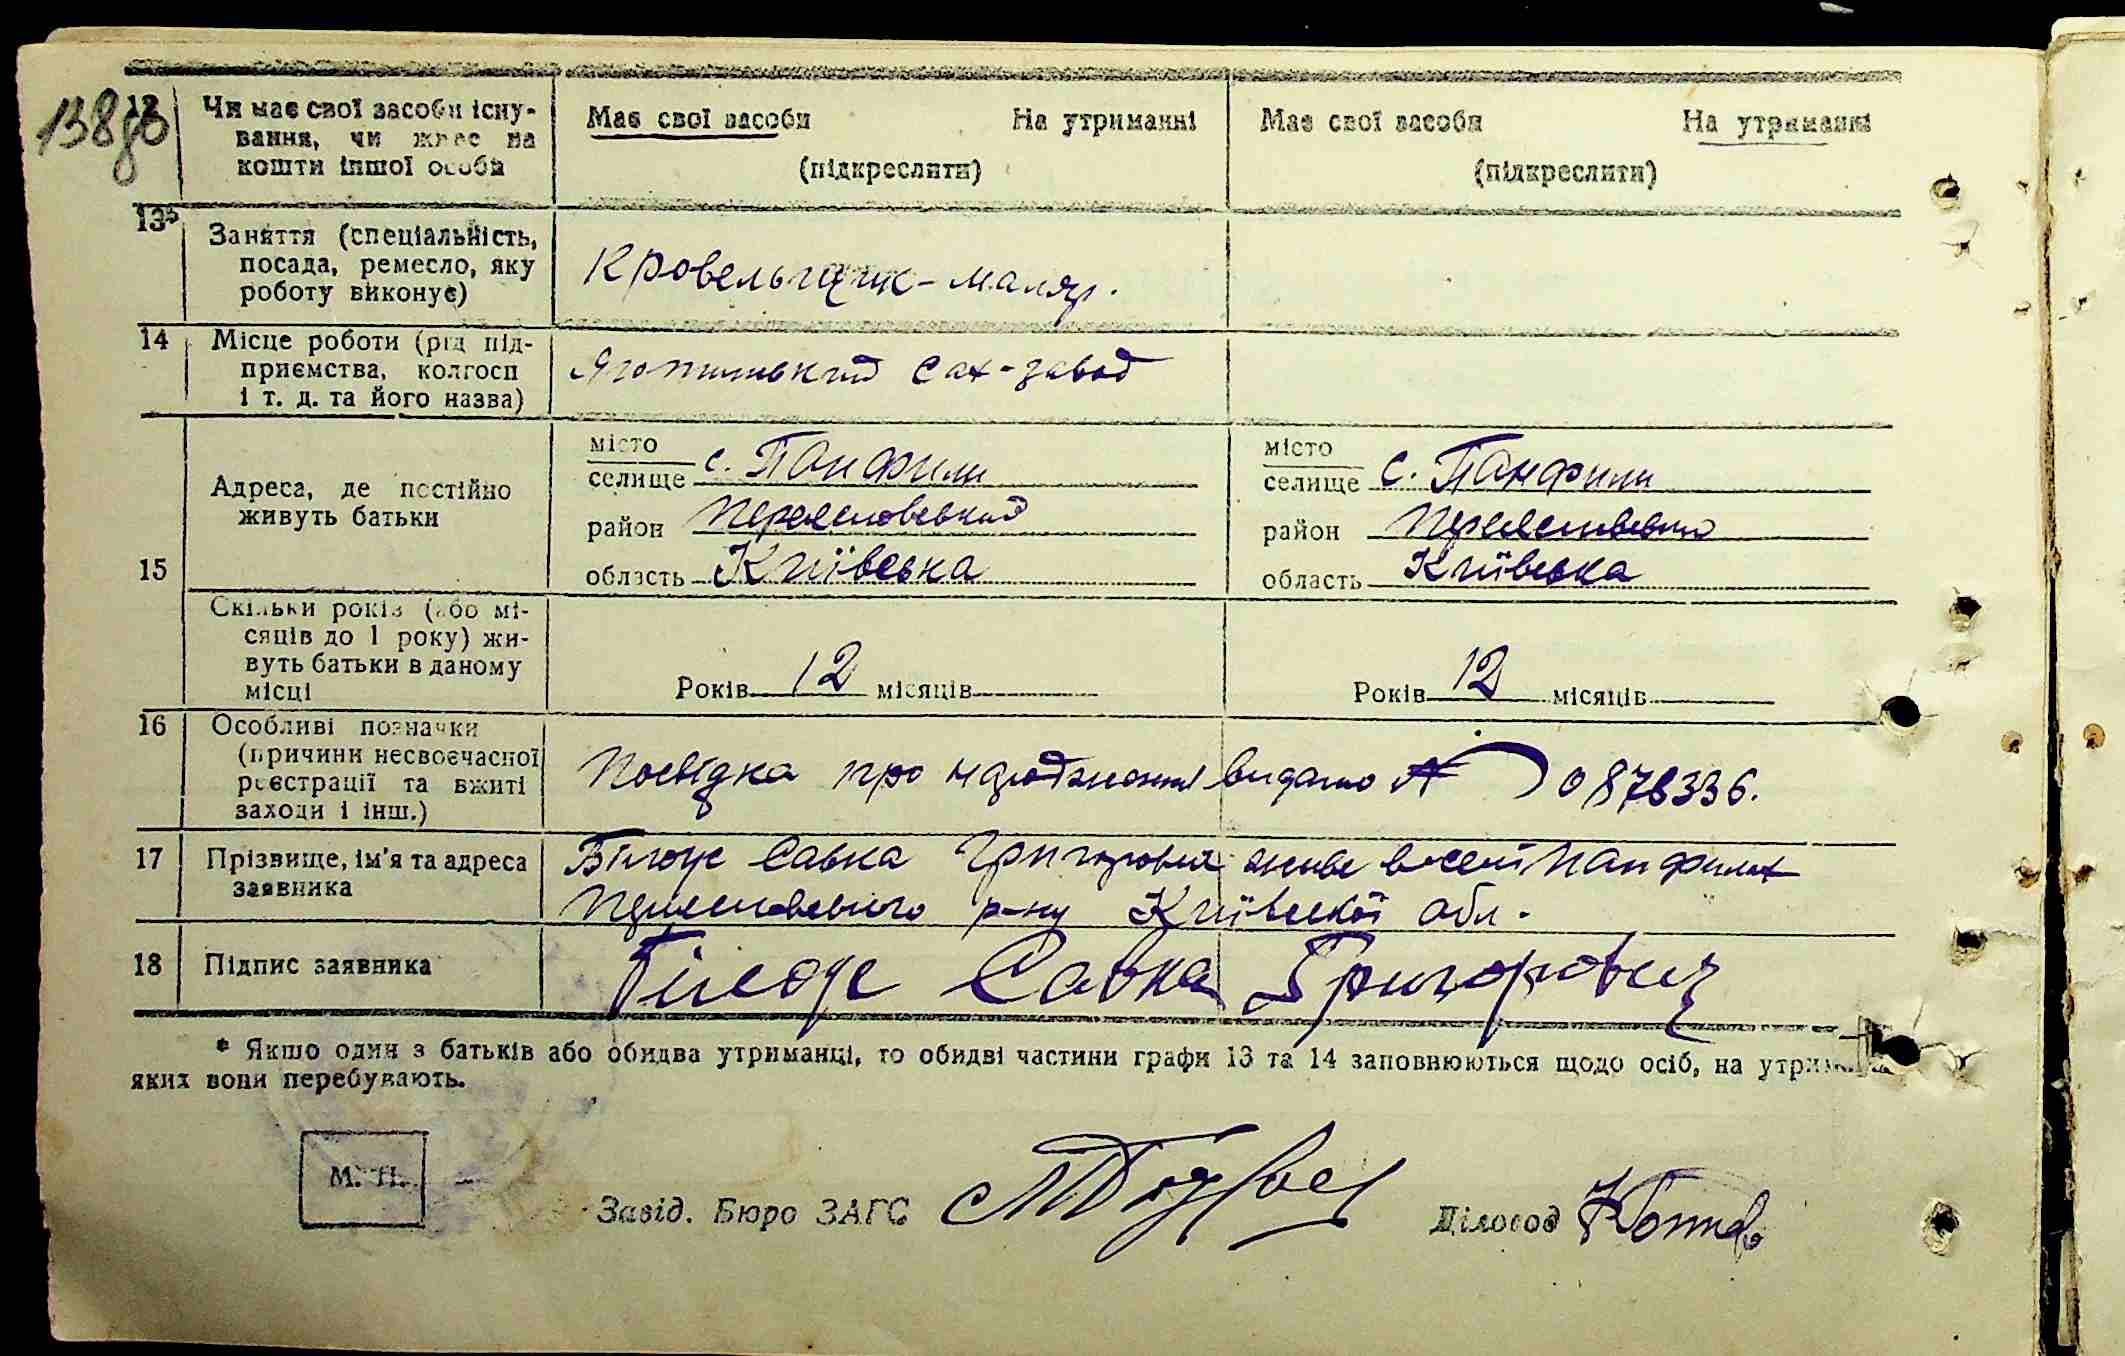 138зв
12 Чи має свої засоби існу-
вання, чи живе на
кошти іншої особи
Має свої засоби На утриманні
(підкреслити)
Має свої засоби На утриманні
(підкреслити)
13* Заняття (спеціальність,
посада, ремесло, яку
роботу виконує)
Кровельщик-маляр.
14 Місце роботи (рід під-
приємства, колгосп
і т. д. та його назва)
Яготинський Сах-завод
15
Адреса, де постійно
живуть батьки
місто
селище с. Панфили
район Переяславський
область Київська
місто
селище с. Панфили
район Переяславський
область Київська
Скільки років (або мі-
сяців до 1 року) жи-
вуть батьки в даному
місці
Років 12 місяців
Років 12 місяців
16 Особливі позначки
(причини несвоєчасної
реєстрації та вжиті
заходи і інш.)
Посвідка про народження видано № 0878336.
17 Прізвище, ім'я та адреса
заявника
Білоус Савка Григорович живе в селі Панфилах
Переяславського р-ну Київської обл.
18 Підпис заявника
Білоус Савка Григорович
* Якщо один з батьків або обидва утриманці, то обидві частини графи 13 та 14 заповнюються щодо осіб, на
яких вони перебувають.
М. П.
Завід. Бюро ЗАГС
Діловод